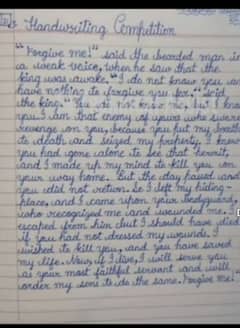 Handwriting Competition
"Forgive me!" said the bearded man in
a weak voice, when he saw that the
king was awake. "I do not know you and
have nothing to forgive you for," said
the king. "You do not know me, but I know
you. I am that enemy of yours who swore
revenge on you, because you put my brother
to death and seized my property. I knew
you had gone alone to see that hermit,
and I made up my mind to kill you on
your way home. But the day passed and
you did not return. So I left my hiding-
place, and I came upon your bodyguard,
who recognized me and wounded me. I
escaped from him but I should have died
if you had not dressed my wounds. I
wished to kill you, and you have saved
my life. Now, if I live, I will serve you
as your most faithful servant and will
order my sons to do the same. Forgive me!"